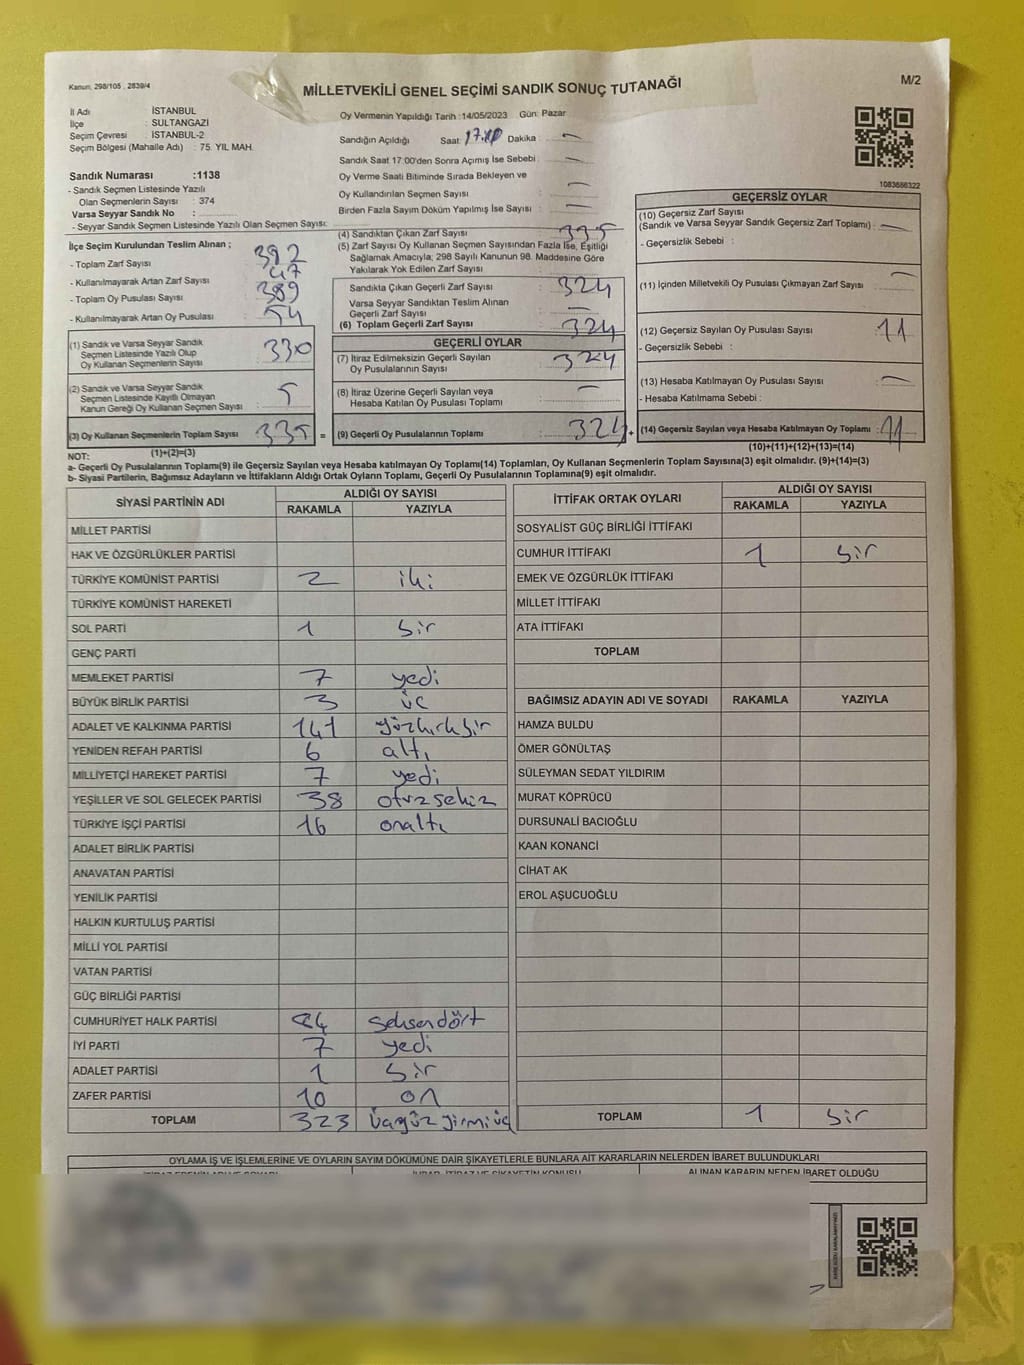 Kanun, 298/105 , 2839/4
MİLLETVEKİLİ GENEL SEÇİMİ SANDIK SONUÇ TUTANAĞI
M/2
İl Adı : İSTANBUL
İlçe : SULTANGAZİ
Seçim Çevresi : İSTANBUL-2
Seçim Bölgesi (Mahalle Adı) : 75. YIL MAH.
Sandık Numarası :1138
- Sandık Seçmen Listesinde Yazılı
Olan Seçmenlerin Sayısı : 374
Varsa Seyyar Sandık No :
- Seyyar Sandık Seçmen Listesinde Yazılı Olan Seçmen Sayısı:
Oy Vermenin Yapıldığı Tarih :14/05/2023 Gün: Pazar
Sandığın Açıldığı Saat: Dakika : —
Sandık Saat 17:00'den Sonra Açımış İse Sebebi : —
Oy Verme Saati Bitiminde Sırada Bekleyen ve
Oy Kullandırılan Seçmen Sayısı : —
Birden Fazla Sayım Döküm Yapılmış İse Sayısı : —
1083686322
İlçe Seçim Kurulundan Teslim Alınan ;
- Toplam Zarf Sayısı : 392
- Kullanılmayarak Artan Zarf Sayısı : 47
- Toplam Oy Pusulası Sayısı : 389
- Kullanılmayarak Artan Oy Pusulası : 54
(1) Sandık ve Varsa Seyyar Sandık
Seçmen Listesinde Yazılı Olup
Oy Kullanan Seçmenlerin Sayısı : 330
(2) Sandık ve Varsa Seyyar Sandık
Seçmen Listesinde Kayıtlı Olmayan
Kanun Gereği Oy Kullanan Seçmen Sayısı : 5
(3) Oy Kullanan Seçmenlerin Toplam Sayısı : 335 =
(1)+(2)=(3)
(4) Sandıktan Çıkan Zarf Sayısı : 335
(5) Zarf Sayısı Oy Kullanan Seçmen Sayısından Fazla İse, Eşitliği
Sağlamak Amacıyla; 298 Sayılı Kanunun 98. Maddesine Göre
Yakılarak Yok Edilen Zarf Sayısı :
Sandıkta Çıkan Geçerli Zarf Sayısı : 324
Varsa Seyyar Sandıktan Teslim Alınan
Geçerli Zarf Sayısı : —
(6) Toplam Geçerli Zarf Sayısı : 324
GEÇERLİ OYLAR
(7) İtiraz Edilmeksizin Geçerli Sayılan
Oy Pusulalarının Sayısı : 324
(8) İtiraz Üzerine Geçerli Sayılan veya
Hesaba Katılan Oy Pusulası Toplamı : —
(9) Geçerli Oy Pusulalarının Toplamı : 324 +
GEÇERSİZ OYLAR
(10) Geçersiz Zarf Sayısı
(Sandık ve Varsa Seyyar Sandık Geçersiz Zarf Toplamı) : —
- Geçersizlik Sebebi :
(11) İçinden Milletvekili Oy Pusulası Çıkmayan Zarf Sayısı : —
(12) Geçersiz Sayılan Oy Pusulası Sayısı : 11
- Geçersizlik Sebebi :
(13) Hesaba Katılmayan Oy Pusulası Sayısı : —
- Hesaba Katılmama Sebebi :
(14) Geçersiz Sayılan veya Hesaba Katılmayan Oy Toplamı : 11
(10)+(11)+(12)+(13)=(14)
NOT:
a- Geçerli Oy Pusulalarının Toplamı(9) ile Geçersiz Sayılan veya Hesaba katılmayan Oy Toplamı(14) Toplamları, Oy Kullanan Seçmenlerin Toplam Sayısına(3) eşit olmalıdır. (9)+(14)=(3)
b- Siyasi Partilerin, Bağımsız Adayların ve İttifakların Aldığı Ortak Oyların Toplamı, Geçerli Oy Pusulalarının Toplamına(9) eşit olmalıdır.
SİYASİ PARTİNİN ADI ALDIĞI OY SAYISI
RAKAMLA YAZIYLA
MİLLET PARTİSİ
HAK VE ÖZGÜRLÜKLER PARTİSİ
TÜRKİYE KOMÜNİST PARTİSİ 2 iki
TÜRKİYE KOMÜNİST HAREKETİ
SOL PARTİ 1 bir
GENÇ PARTİ
MEMLEKET PARTİSİ 7 yedi
BÜYÜK BİRLİK PARTİSİ 3 üc
ADALET VE KALKINMA PARTİSİ 141 yüzkırkbir
YENİDEN REFAH PARTİSİ 6 altı
MİLLİYETÇİ HAREKET PARTİSİ 7 yedi
YEŞİLLER VE SOL GELECEK PARTİSİ 38 otuzsekiz
TÜRKİYE İŞÇİ PARTİSİ 16 onaltı
ADALET BİRLİK PARTİSİ
ANAVATAN PARTİSİ
YENİLİK PARTİSİ
HALKIN KURTULUŞ PARTİSİ
MİLLİ YOL PARTİSİ
VATAN PARTİSİ
GÜÇ BİRLİĞİ PARTİSİ
CUMHURİYET HALK PARTİSİ 84 seksendört
İYİ PARTİ 7 yedi
ADALET PARTİSİ 1 bir
ZAFER PARTİSİ 10 on
TOPLAM 323 üçyüzyirmiüç
İTTİFAK ORTAK OYLARI ALDIĞI OY SAYISI
RAKAMLA YAZIYLA
SOSYALİST GÜÇ BİRLİĞİ İTTİFAKI
CUMHUR İTTİFAKI 1 bir
EMEK VE ÖZGÜRLÜK İTTİFAKI
MİLLET İTTİFAKI
ATA İTTİFAKI
TOPLAM
BAĞIMSIZ ADAYIN ADI VE SOYADI RAKAMLA YAZIYLA
HAMZA BULDU
ÖMER GÖNÜLTAŞ
SÜLEYMAN SEDAT YILDIRIM
MURAT KÖPRÜCÜ
DURSUNALİ BACIOĞLU
KAAN KONANCİ
CİHAT AK
EROL AŞUCUOĞLU
TOPLAM 1 bir
OYLAMA İŞ VE İŞLEMLERİNE VE OYLARIN SAYIM DÖKÜMÜNE DAİR ŞİKAYETLERLE BUNLARA AİT KARARLARIN NELERDEN İBARET BULUNDUKLARI
ALINAN KARARIN NEDEN İBARET OLDUĞU